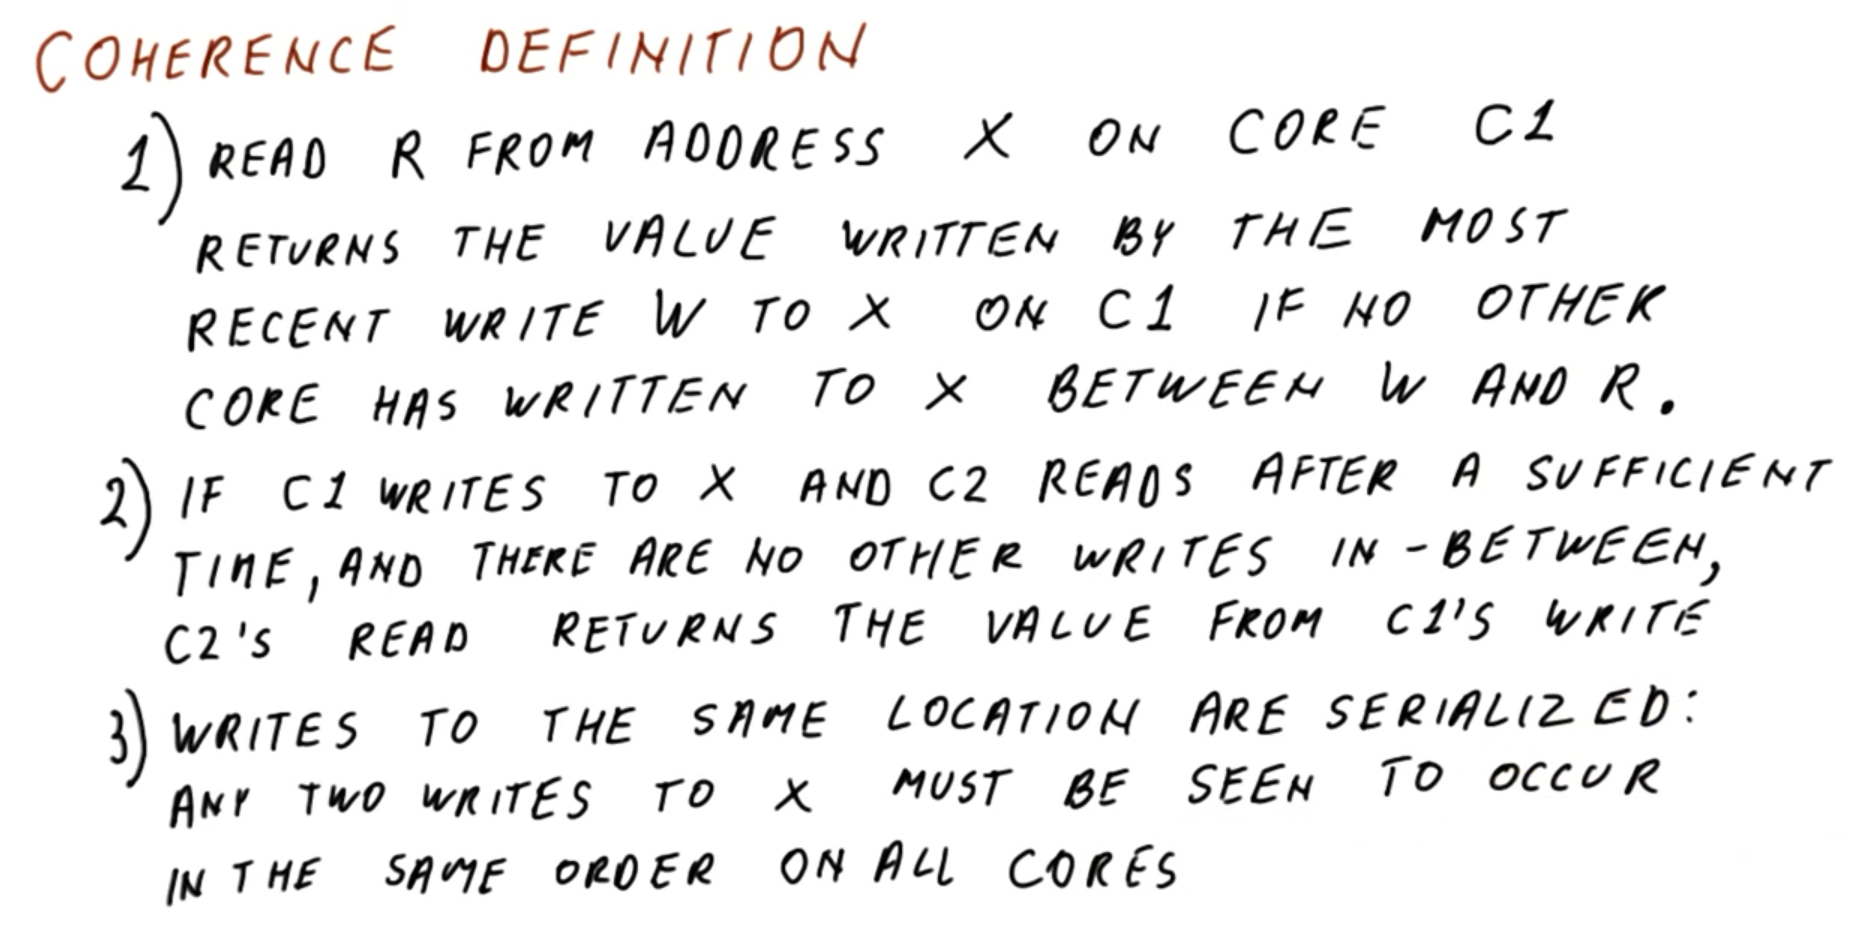 COHERENCE DEFINITION
1) READ R FROM ADDRESS X ON CORE C1
RETURNS THE VALUE WRITTEN BY THE MOST
RECENT WRITE W TO X ON C1 IF NO OTHER
CORE HAS WRITTEN TO X BETWEEN W AND R.
2) IF C1 WRITES TO X AND C2 READS AFTER A SUFFICIENT
TIME, AND THERE ARE NO OTHER WRITES IN-BETWEEN,
C2'S READ RETURNS THE VALUE FROM C1'S WRITE
3) WRITES TO THE SAME LOCATION ARE SERIALIZED:
ANY TWO WRITES TO X MUST BE SEEN TO OCCUR
IN THE SAME ORDER ON ALL CORES